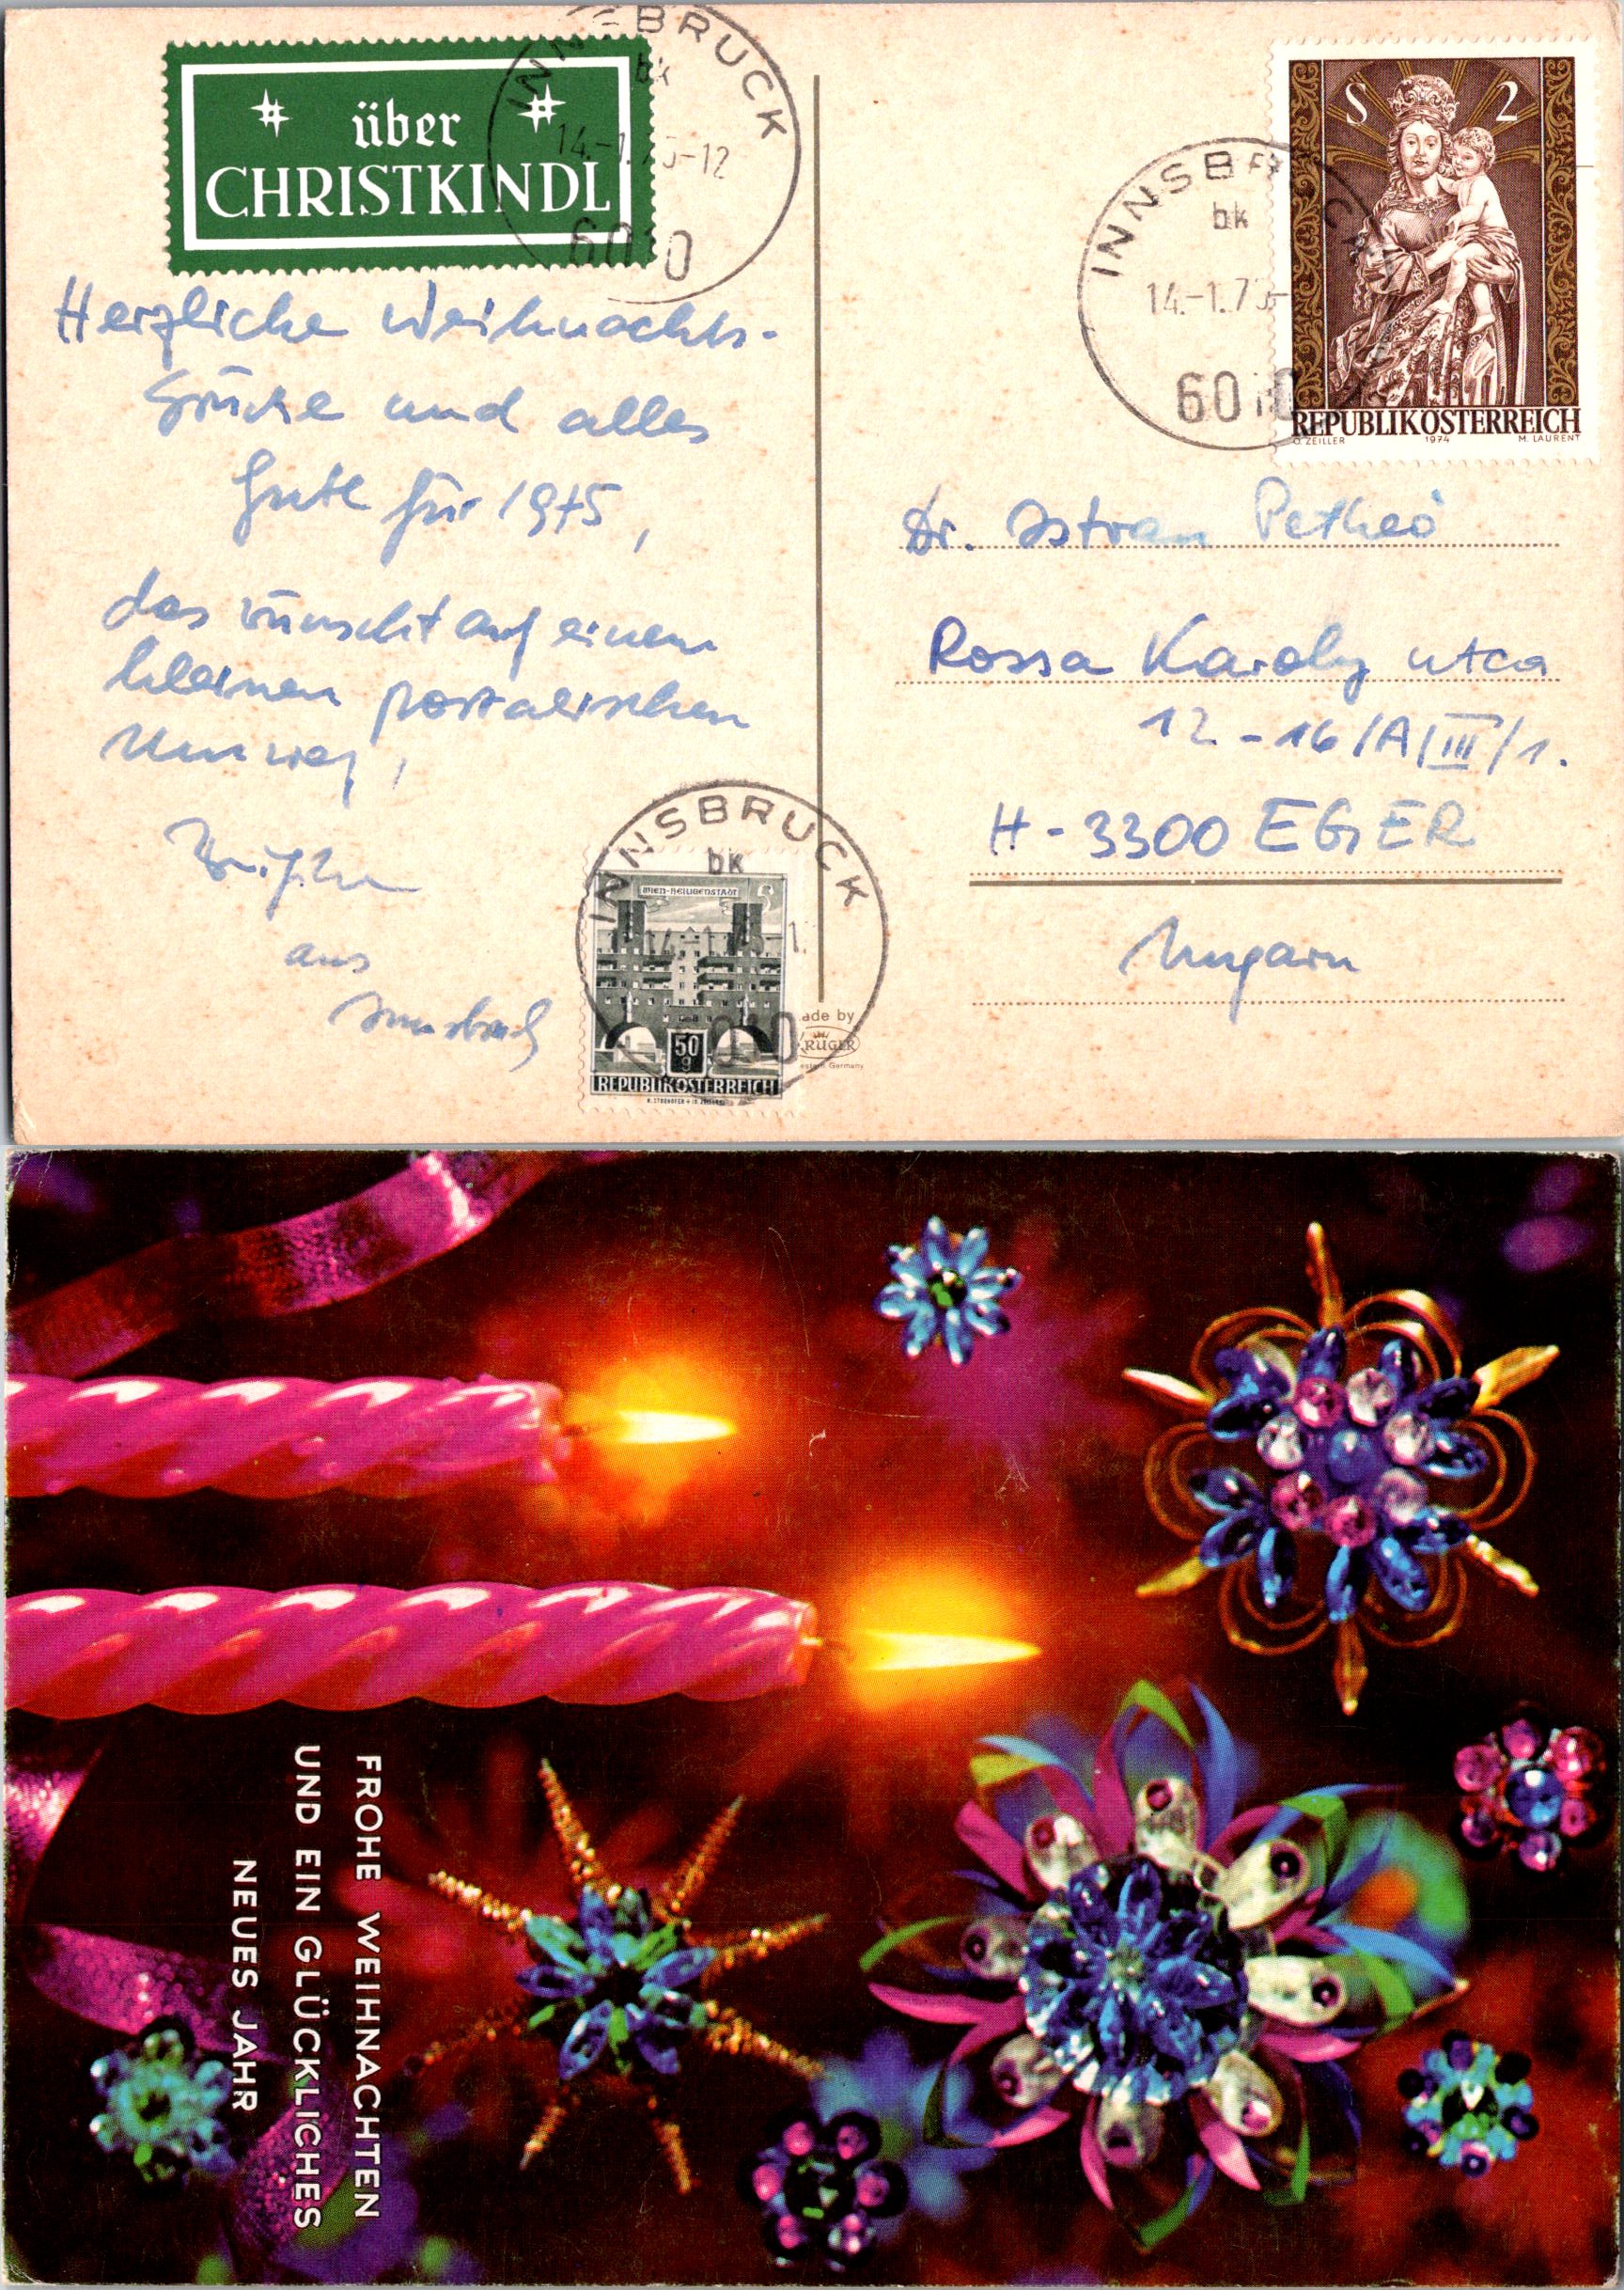 über
CHRISTKINDL
INNSBRUCK
bk
14.-1.75-12
6010
Herzliche Weihnachts-
Grüße und alles
Gute für 1975,
das wünscht auf einem
kleinen postalischen
Umweg,
aus
Innsbruck
INNSBRUCK
bk
14.-1.75-
6010
S 2
REPUBLIK ÖSTERREICH
O. ZEILLER 1974 M. LAURENT
Dr. Istvan Petheö
Rossa Karoly utca
12-16/A/III/1.
H-3300 EGER
Ungarn
INNSBRUCK
bk
WIEN-HEILIGENSTADT
50
g
REPUBLIK ÖSTERREICH
ade by
KRÜGER
estern Germany
FROHE WEIHNACHTEN
UND EIN GLÜCKLICHES
NEUES JAHR